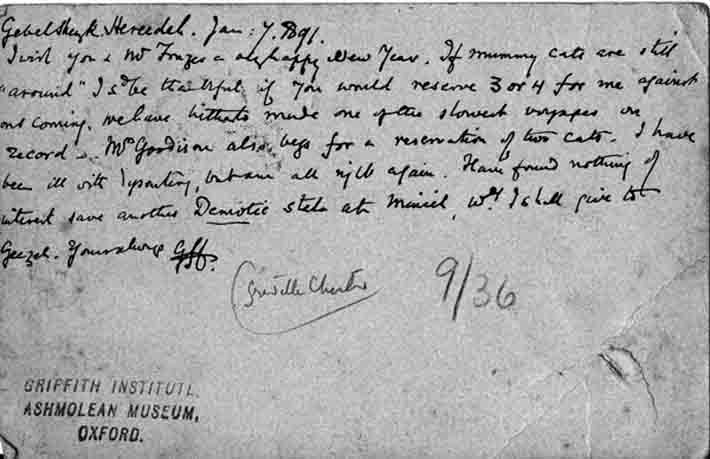 Gebel Sheykh Hereedeh. Jan: 7. 1891.
I wish you & Mr Frazer a very happy New Year. If mummy cats are still
"around" I sd be thankful if you would reserve 3 or 4 for me against
our coming. We have hitherto made one of the slowest voyages on
record. Mrs Goodison also begs for a reservation of two cats. I have
been ill with vomiting, but am all right again. Have found nothing of
interest save another Demotic stela at Minieh, wh. I shall give to
Yours always
(Greville Chester
9/36
GRIFFITH INSTITUTE,
ASHMOLEAN MUSEUM,
OXFORD.